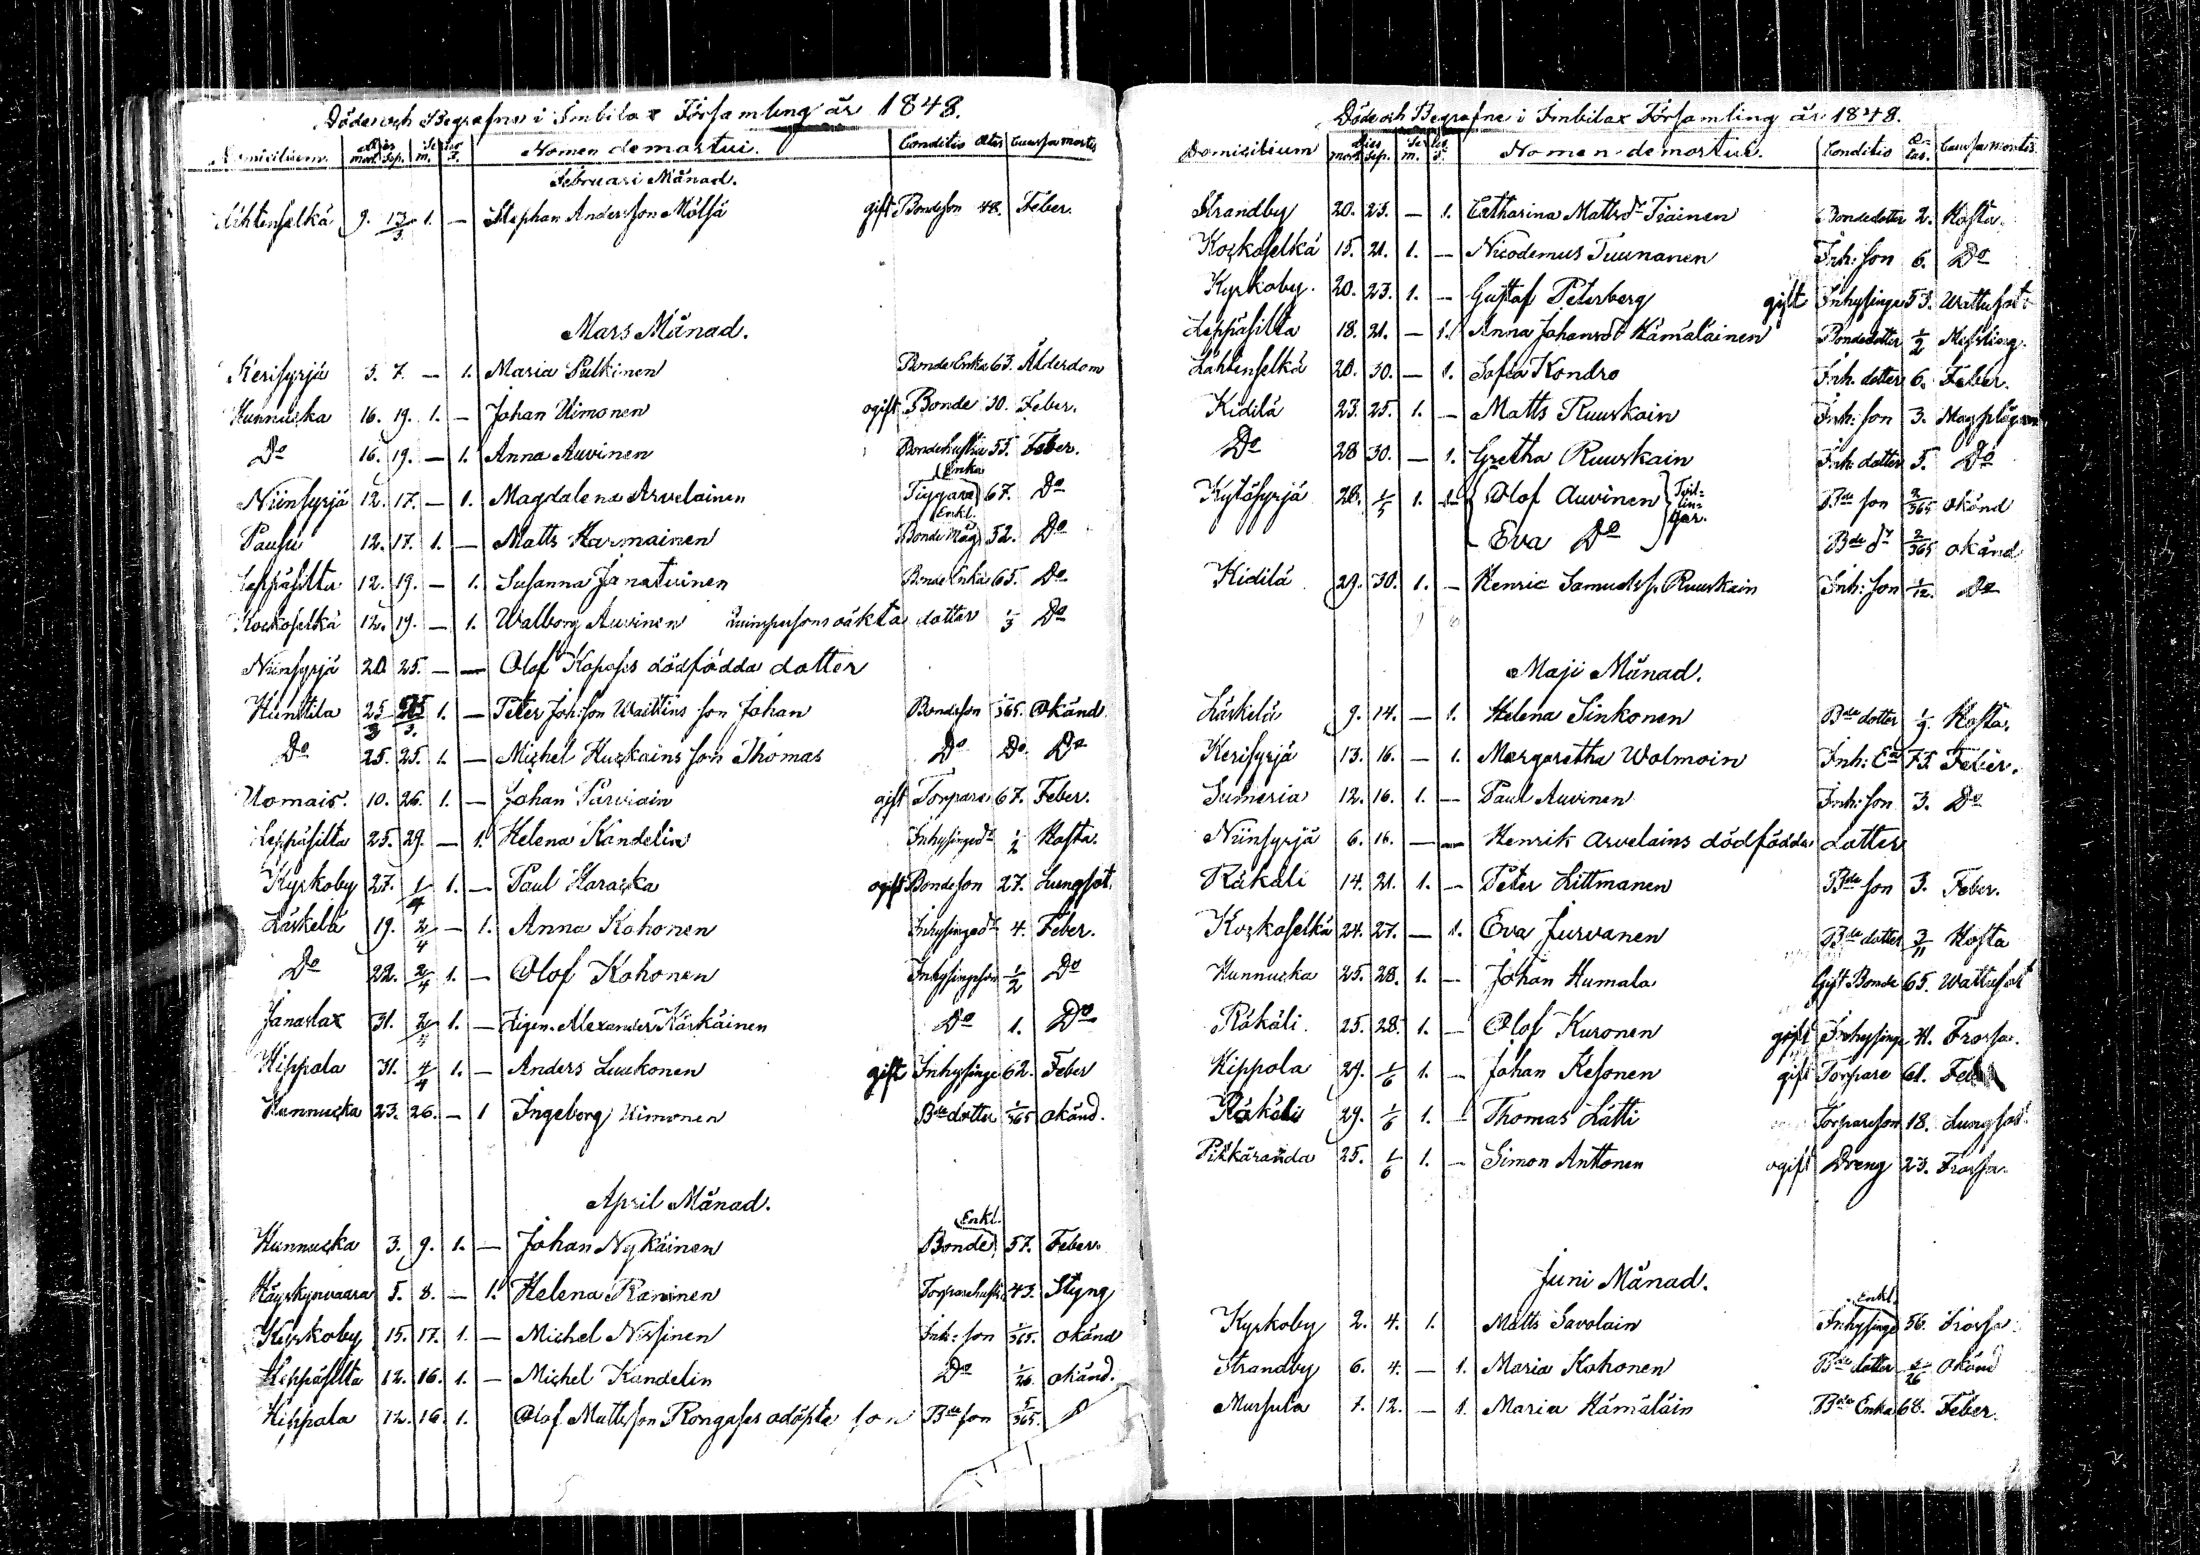 Döde och Begrafne i Imbilax Församling år 1848.
Domicilium. Dies mort. Sep. Sexus m. f. Nomen demortui. Conditio Ætas Caussa mortis
Februari Månad.
Lähtenselkä 9. 13/3 1. — Stephan Andersson Mölsä gift Bondeson 48. Feber.
Mars Månad.
Kerisyrjä 5. 7. — 1. Maria Pulkinen Bonde Enka 63. Ålderdom
Hunnucka 16. 19. 1. — Johan Uimonen ogift Bonde 30. Feber.
Do 16. 19. — 1. Anna Auvinen Bondehustru 55. Feber.
Niinsyrjä 12. 17. — 1. Magdalena Arvelainen Tiggare Enka 67. Do
Pausu 12. 17. 1. — Matts Karmainen Bonde Måg Enkl. 52. Do
Leppäsilta 12. 19. — 1. Susanna Janatuinen Bonde Enka 65. Do
Kockoselkä 12. 19. — 1. Walborg Auvinen qvinspersons oäkta dotter 1/3 Do
Niinsyrjä 20 25. — — Olof Koposes dödfödda dotter
Hunttila 25/3 25/3. 1. — Peter Joh:son Waittins son Johan Bondeson 1/365. Okänd
Do 25. 25. 1. — Michel Huckains son Thomas Do Do. Do
Uomais. 10. 26. 1. — Johan Parviain gift Torpare 67. Feber.
Leppäsilta 25. 29. — 1. Helena Kandelin Inhysinged:r 1/2 Hosta.
Kyrkoby 27. 1/4 1. — Paul Haracka ogift Bondeson 27. Lungsot.
Läskelä 19. 2/4 — 1. Anna Kohonen Inhysinged:r 4. Feber.
Do 22. 2/4 1. — Olof Kohonen Inhysingeson 1/2 Do
Janaslax 31. 2/4 1. — Zigen. Alexander Kärkäinen Do 1. Do
Hippala 31. 4/4 1. — Anders Luukonen gift Inhysinge 62. Feber
Hunnucka 23. 26. — 1 Ingeborg Uimonen Bde dotter 1/365 okänd.
April Månad.
Hunnucka 3. 9. 1. — Johan Nykäinen Bonde Enkl. 57. Feber.
Käyrkynvaara 5. 8. — 1. Helena Raninen Torparehustr. 43. Styng
Kyrkoby 15. 17. 1. — Michel Nissinen Inh: son 1/365. okänd
Leppäsilta 12. 16. 1. — Michel Kandelin Do 1/26. okänd.
Hippala 12. 16 1. Olof Mattsson Rongases odöpte son Bde son 5/365.
Döde och Begrafne i Imbilax Församling år 1848.
Domicilium Dies mort. Sep. Sexus m. f. Nomen demortui. Conditio Ætas. Caussa mortis
Strandby 20. 23. — 1. Catharina Mattsdr Tiainen Bondedotter 2. Hosta.
Kockoselkä 15. 21. 1. — Nicodemus Tuunanen Inh: son 6. Do
Kyrkoby. 20. 23. 1. — Gustaf Peterberg gift Inhysinge 53. Wattusot
Leppäsilta 18. 21. — 1. Anna Johansdr Hämäläinen Bondedotter 1/2 Messling.
Lähtenselkä 20. 30. — 1. Sofia Kondro Inh. dotter 6. Feber.
Kidilä 23. 25. 1. — Matts Ruuskain Inh: son 3. Magplågan
Do 28 30. — 1. Gretha Ruuskain Inh: dotter 5. Do
Kytösyrjä 28. 1/5 1. 1. Olof Auvinen Tvillingar. Bde son 2/365 okänd
Eva Do Bde dr 2/365 okänd
Kidilä 29. 30. 1. — Henric Samuelss. Ruuskain Inh: son 1/12. Do
Maji Månad.
Läskelä 9. 14. — 1. Helena Sinkonen Bde dotter 1/9. Hosta.
Kerisyrjä 13. 16. — 1. Margaretha Wolmoin Inh: Ea 75. Feber.
Sumeria 12. 16. 1. — Paul Auvinen Inh: son 3. Do
Niinsyrjä 6. 16. — — Henrik Arvelains dödfödda dotter
Räkäli 14. 21. 1. — Peter Littmanen Bde son 3. Feber.
Kockoselkä 24. 27. — 1. Eva Jurvanen Bde dotter 3/11 Hosta
Hunnucka 25. 28. 1. — Johan Humala Gift Bonde 65. Wattusot
Räkäli. 25. 28. 1. — Olof Kuronen gift Inhysinge 41. Frossa.
Hippola 29. 1/6 1. — Johan Kesonen gift Torpare 61. Feber
Räkäli 29. 1/6 1. — Thomas Lätti Torpareson 18. Lungsot
Pitkäranda 25. 1/6 1. — Simon Anttonen ogift Dreng 23. Frossa.
Juni Månad.
Kyrkoby 2. 4. 1. Matts Savolain Inhysinge Enkl. 56. Frossa.
Strandby 6. 4. — 1. Maria Kohonen Bde dotter okänd
Mursula 7. 12. — 1. Maria Hämäläin Bde Enka 68. Feber.